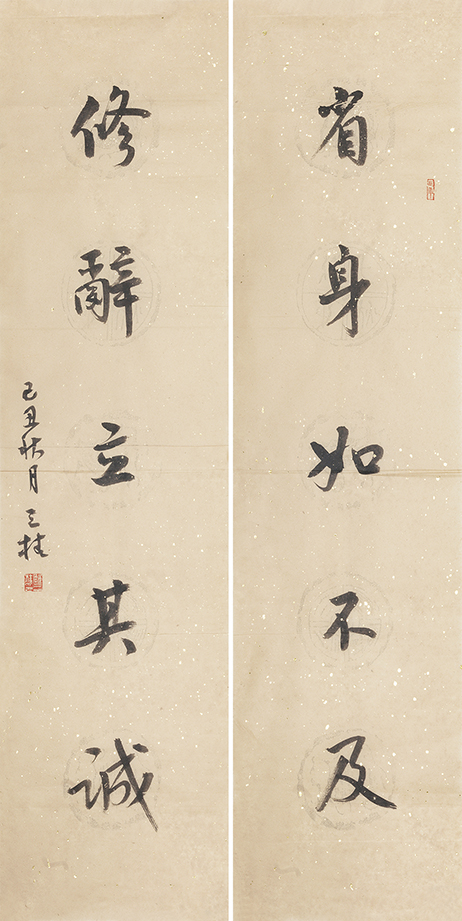 省身如不及
修辭立其誠
己丑秋月 三桂